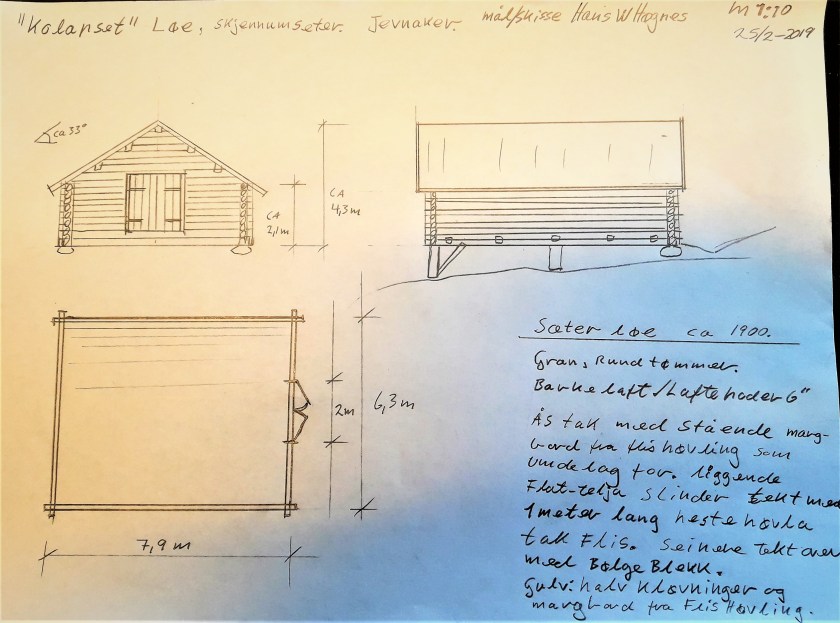 "Kolapset" Løe, skjennumseter. Jevnaker. mål/skisse Hans W Hognes
M 1:10
25/2-2019
ca 33°
CA 2,1m
CA 4,3m
2m
6,3m
7,9m
Sæter løe ca 1900.
Gran, Rundtømmer.
Barkelaft/Laftehoder 6"
Ås tak med stående marg-
bord fra flishøvling som
underlag for. liggende
Flat-telja slinder tekt med
1meter lang hestehøvla
tak Flis. Seinere Tekt over
med Bølge Blekk.
Gulv: halv kløvninger og
margbord fra FlisHøvling.